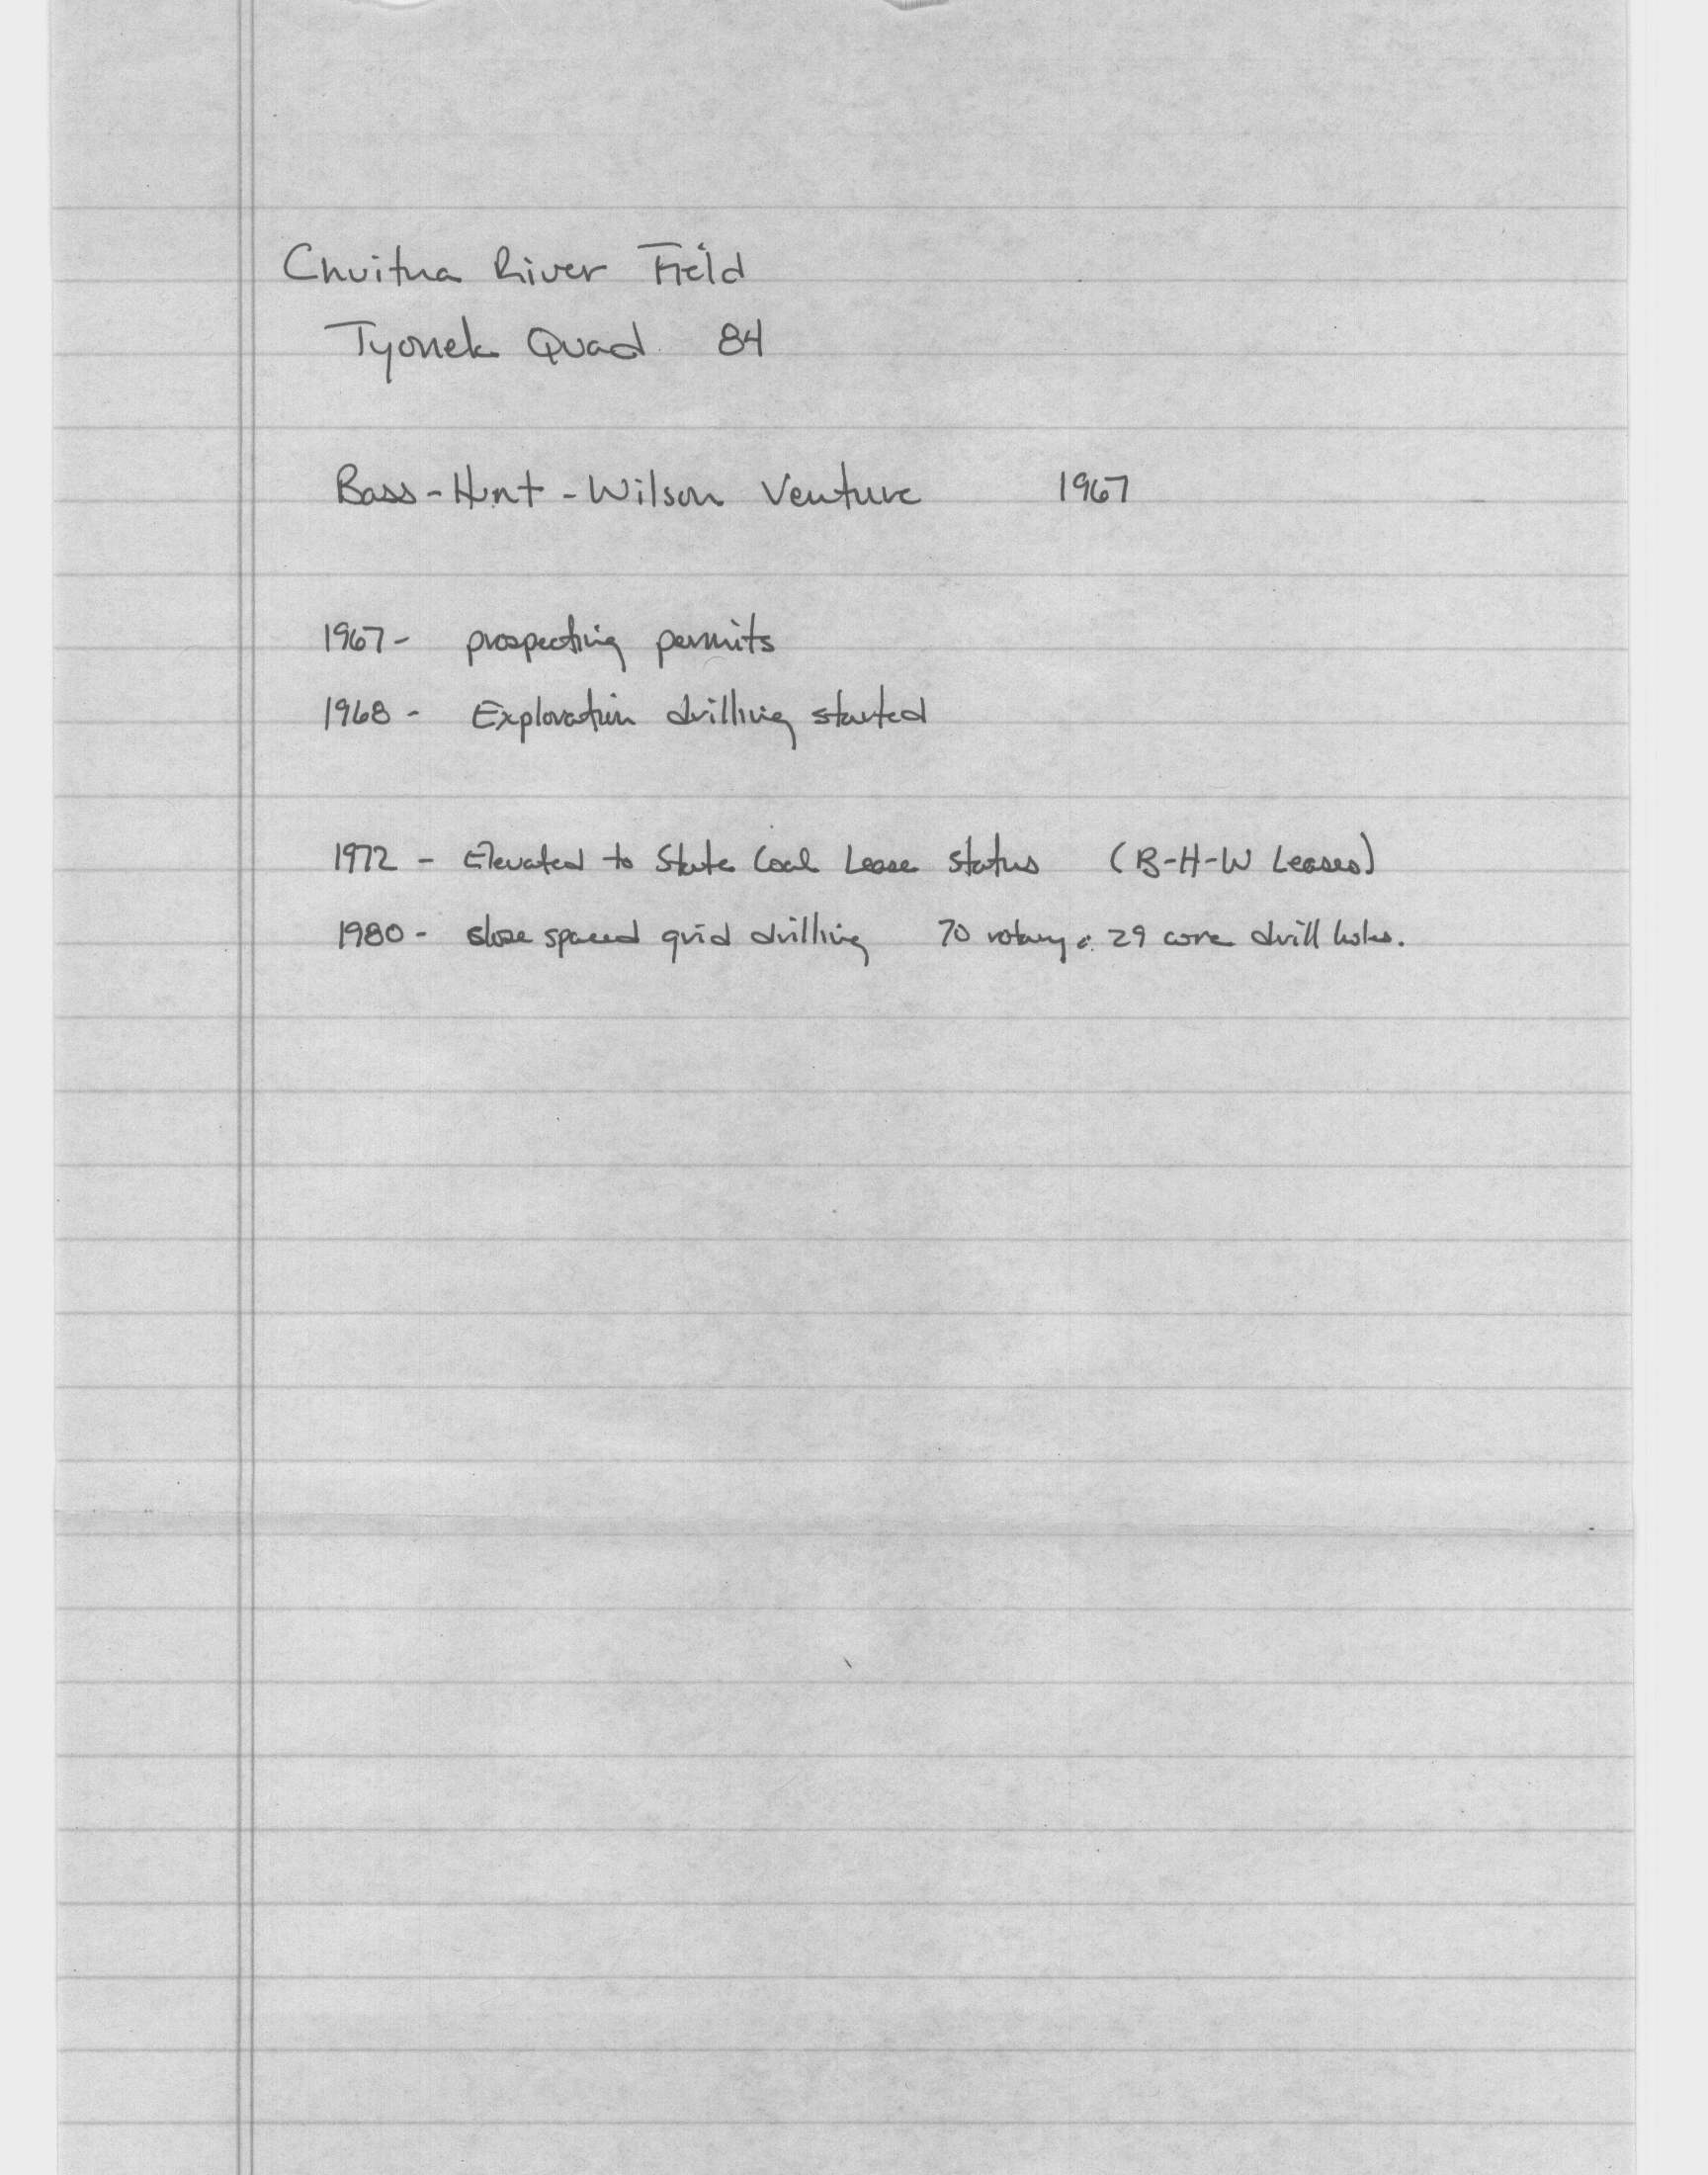 Chuitna River Field
Tyonek Quad 84
Bass-Hunt-Wilson Venture 1967
1967- prospecting permits
1968- Exploration drilling started
1972 - Elevated to State Coal Lease status (B-H-W Leases)
1980- close spaced grid drilling 70 rotary & 29 core drill holes.